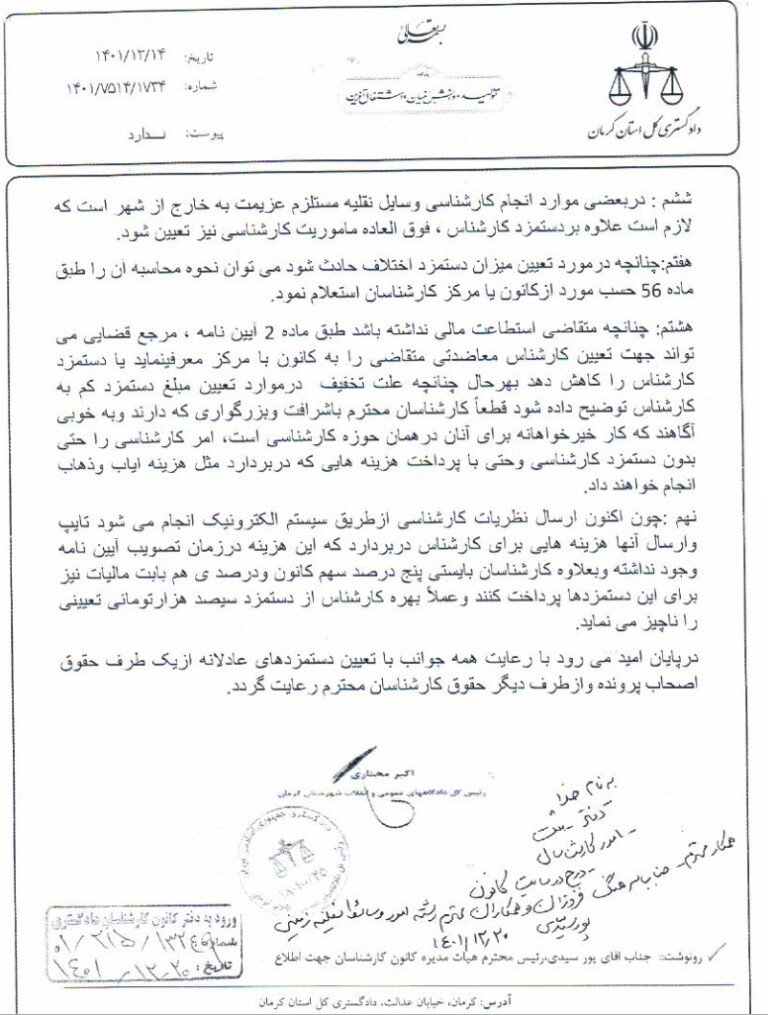 بسمه تعالی
تاریخ: ۱۴۰۱/۱۲/۱۴
شماره: ۱۴۰۱/۷۵۱۴/۱۷۳۴
پیوست: ندارد
دادگستری کل استان کرمان
ششم : دربعضی موارد انجام کارشناسی وسایل نقلیه مستلزم عزیمت به خارج از شهر است که
لازم است علاوه بردستمزد کارشناس ، فوق العاده ماموریت کارشناسی نیز تعیین شود.
هفتم:چنانچه درمورد تعیین میزان دستمزد اختلاف حادث شود می توان نحوه محاسبه آن را طبق
ماده 56 حسب مورد ازکانون یا مرکز کارشناسان استعلام نمود.
هشتم: چنانچه متقاضی استطاعت مالی نداشته باشد طبق ماده 2 آیین نامه ، مرجع قضایی می
تواند جهت تعیین کارشناس معاضدتی متقاضی را به کانون یا مرکز معرفینماید یا دستمزد
کارشناس را کاهش دهد بهرحال چنانچه علت تخفیف درموارد تعیین مبلغ دستمزد کم به
کارشناس توضیح داده شود قطعاً کارشناسان محترم باشرافت وبزرگواری که دارند وبه خوبی
آگاهند که کار خیرخواهانه برای آنان درهمان حوزه کارشناسی است، امر کارشناسی را حتی
بدون دستمزد کارشناسی وحتی با پرداخت هزینه هایی که دربردارد مثل هزینه ایاب وذهاب
انجام خواهند داد.
نهم :چون اکنون ارسال نظریات کارشناسی ازطریق سیستم الکترونیک انجام می شود تایپ
وارسال آنها هزینه هایی برای کارشناس دربردارد که این هزینه درزمان تصویب آیین نامه
وجود نداشته وبعلاوه کارشناسان بایستی پنج درصد سهم کانون ودرصد ی هم بابت مالیات نیز
برای این دستمزدها پرداخت کنند وعملاً بهره کارشناس از دستمزد سیصد هزارتومانی تعیینی
را ناچیز می نماید.
درپایان امید می رود با رعایت همه جوانب با تعیین دستمزدهای عادلانه ازیک طرف حقوق
اصحاب پرونده وازطرف دیگر حقوق کارشناسان محترم رعایت گردد.
اکبر مختاری
رئیس کل دادگاههای عمومی و انقلاب شهرستان کرمان
به نام خدا
دفتر - ثبت
- درج در سایت کانون
همکار محترم - جناب سرهنگ فروزان و همکاران محترم رشته امور وسائط نقلیه زمینی
پورسیدی
۱۴۰۱/۱۲/۲۰
ورود به دفتر کانون کارشناسان دادگستری
شماره:
تاریخ: ۱۴۰۱/۱۲/۲۰
رونوشت: جناب اقای پور سیدی،رئیس محترم هیأت مدیره کانون کارشناسان جهت اطلاع
آدرس: کرمان، خیابان عدالت، دادگستری کل استان کرمان